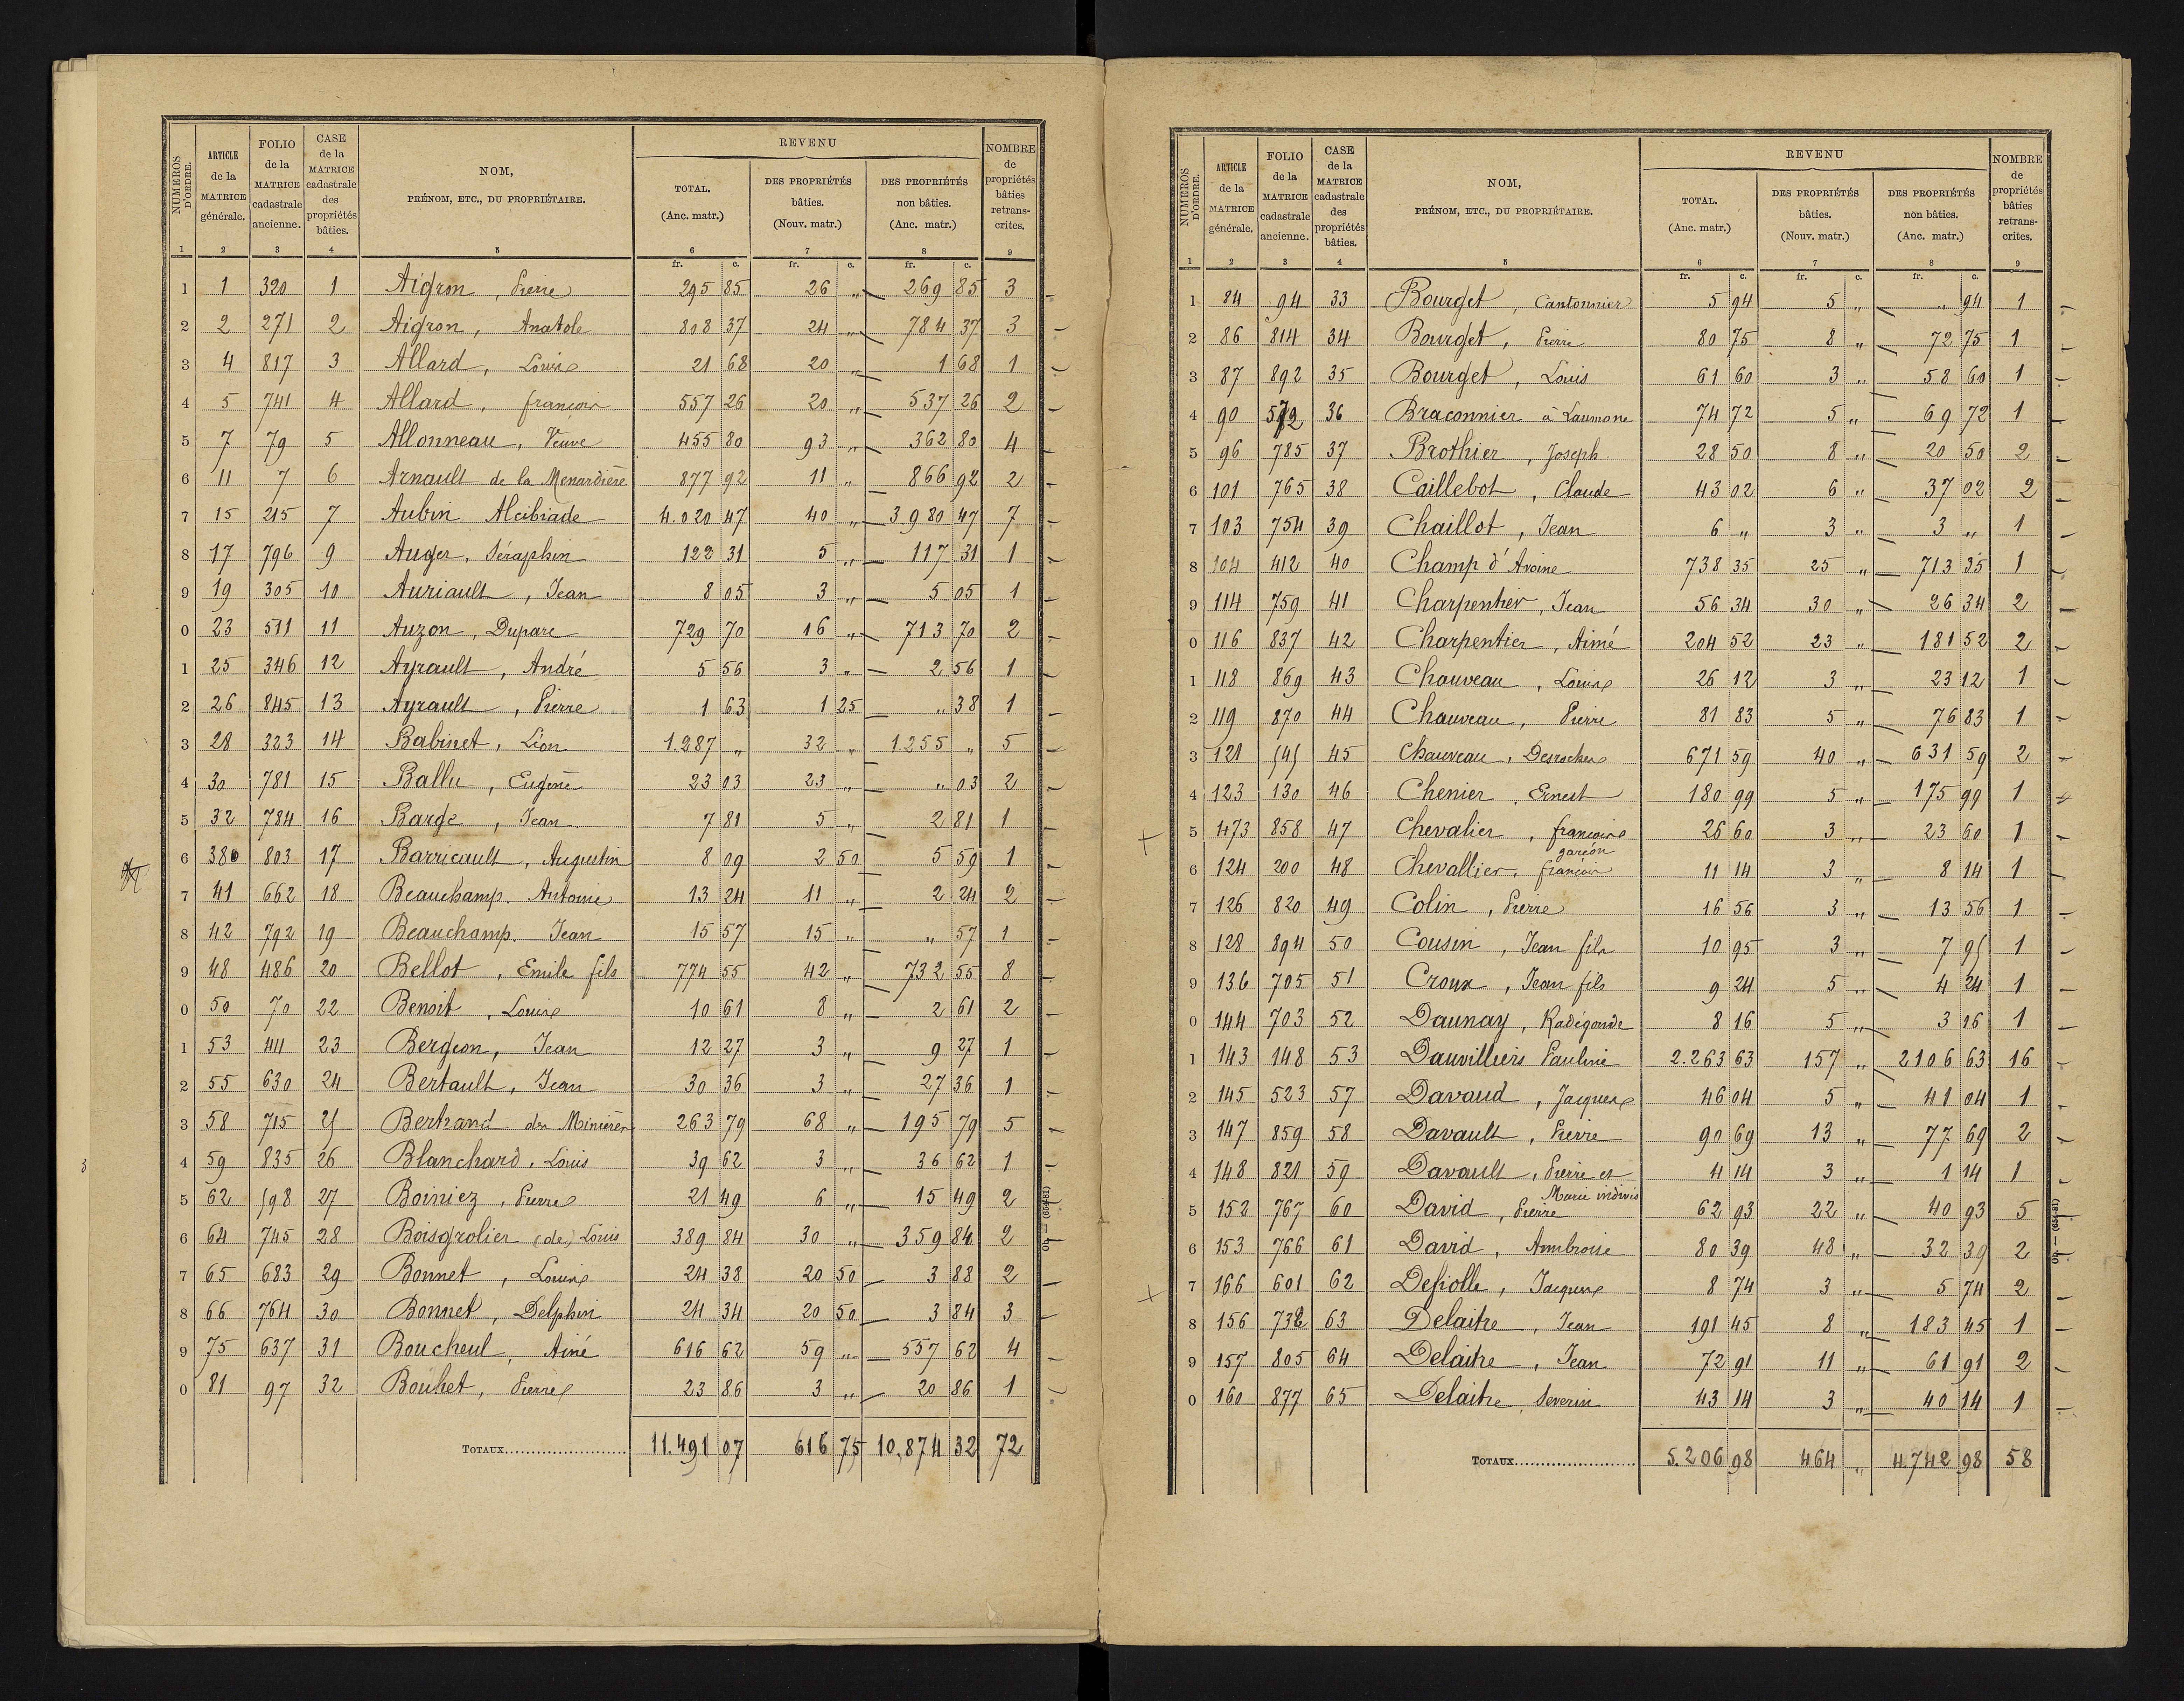 NUMÉROS D'ORDRE. | ARTICLE de la MATRICE générale. | FOLIO de la MATRICE cadastrale ancienne. | CASE de la MATRICE cadastrale des propriétés bâties. | NOM, PRÉNOM, ETC., DU PROPRIÉTAIRE. | REVENU | NOMBRE de propriétés bâties retranscrites.
TOTAL. (Anc. matr.) | DES PROPRIÉTÉS bâties. (Nouv. matr.) | DES PROPRIÉTÉS non bâties. (Anc. matr.)
1 | 2 | 3 | 4 | 5 | 6 | 7 | 8 | 9
fr. c. | fr. c. | fr. c.
1 | 1 | 320 | 1 | Aigron, Pierre | 295 85 | 26 " | 269 85 | 3
2 | 2 | 271 | 2 | Aigron, Anatole | 808 37 | 24 " | 784 37 | 3
3 | 4 | 817 | 3 | Allard, Louis | 21 68 | 20 " | 1 68 | 1
4 | 5 | 741 | 4 | Allard, françois | 557 26 | 20 " | 537 26 | 2
5 | 7 | 79 | 5 | Allonneau, Veuve | 455 80 | 93 " | 362 80 | 4
6 | 11 | 7 | 6 | Arnault de la Menardière | 877 92 | 11 " | 866 92 | 2
7 | 15 | 215 | 7 | Aubin Alcibiade | 4.020 47 | 40 " | 3.980 47 | 7
8 | 17 | 796 | 9 | Auger, Séraphin | 122 31 | 5 " | 117 31 | 1
9 | 19 | 305 | 10 | Auriault, Jean | 8 05 | 3 " | 5 05 | 1
0 | 23 | 511 | 11 | Auzon, Duparc | 729 70 | 16 " | 713 70 | 2
1 | 25 | 346 | 12 | Ayrault, André | 5 56 | 3 " | 2 56 | 1
2 | 26 | 845 | 13 | Ayrault, Pierre | 1 63 | 1 25 | " 38 | 1
3 | 28 | 323 | 14 | Babinet, Léon | 1.287 " | 32 " | 1.255 " | 5
4 | 30 | 781 | 15 | Ballu, Eugène | 23 03 | 23 " | " 03 | 2
5 | 32 | 784 | 16 | Barge, Jean | 7 81 | 5 " | 2 81 | 1
6 | 380 | 803 | 17 | Barricault, Augustin | 8 09 | 2 50 | 5 59 | 1
7 | 41 | 662 | 18 | Beauchamp. Antoine | 13 24 | 11 " | 2 24 | 2
8 | 42 | 792 | 19 | Beauchamp. Jean | 15 57 | 15 " | " 57 | 1
9 | 48 | 486 | 20 | Bellot, Emile fils | 774 55 | 42 " | 732 55 | 8
0 | 50 | 70 | 22 | Benoit, Louis | 10 61 | 8 " | 2 61 | 2
1 | 53 | 411 | 23 | Bergeon, Jean | 12 27 | 3 " | 9 27 | 1
2 | 55 | 630 | 24 | Bertault, Jean | 30 36 | 3 " | 27 36 | 1
3 | 58 | 715 | 25 | Bertrand des Minières | 263 79 | 68 " | 195 79 | 5
4 | 59 | 835 | 26 | Blanchard, Louis | 39 62 | 3 " | 36 62 | 1
5 | 62 | 598 | 27 | Boiniez, Pierre | 21 49 | 6 " | 15 49 | 2
6 | 64 | 745 | 28 | Boisgrolier (de) Louis | 389 84 | 30 " | 359 84 | 2
7 | 65 | 683 | 29 | Bonnet, Louis | 24 38 | 20 50 | 3 88 | 2
8 | 66 | 764 | 30 | Bonnet, Delphin | 24 34 | 20 50 | 3 84 | 3
9 | 75 | 637 | 31 | Boucheul, Ainé | 616 62 | 59 " | 557 62 | 4
0 | 81 | 97 | 32 | Bouhet, Pierre | 23 86 | 3 " | 20 86 | 1
TOTAUX | 11.491 07 | 616 75 | 10,874 32 | 72
3
(654-81)
NUMÉROS D'ORDRE. | ARTICLE de la MATRICE générale. | FOLIO de la MATRICE cadastrale ancienne. | CASE de la MATRICE cadastrale des propriétés bâties. | NOM, PRÉNOM, ETC., DU PROPRIÉTAIRE. | REVENU | NOMBRE de propriétés bâties retranscrites.
TOTAL. (Anc. matr.) | DES PROPRIÉTÉS bâties. (Nouv. matr.) | DES PROPRIÉTÉS non bâties. (Anc. matr.)
1 | 2 | 3 | 4 | 5 | 6 | 7 | 8 | 9
fr. c. | fr. c. | fr. c.
1 | 84 | 94 | 33 | Bourget, Cantonnier | 5 94 | 5 " | " 94 | 1
2 | 86 | 814 | 34 | Bourget, Pierre | 80 75 | 8 " | 72 75 | 1
3 | 87 | 892 | 35 | Bourget, Louis | 61 60 | 3 " | 58 60 | 1
4 | 90 | 36 | Braconnier à Laumone | 74 72 | 5 " | 69 72 | 1
5 | 96 | 785 | 37 | Brothier, Joseph | 28 50 | 8 " | 20 50 | 2
6 | 101 | 765 | 38 | Caillebot, Claude | 43 02 | 6 " | 37 02 | 2
7 | 103 | 754 | 39 | Chaillot, Jean | 6 " | 3 " | 3 " | 1
8 | 104 | 412 | 40 | Champ d'Avoine | 738 35 | 25 " | 713 35 | 1
9 | 114 | 759 | 41 | Charpentier, Jean | 56 34 | 30 " | 26 34 | 2
0 | 116 | 837 | 42 | Charpentier, Aimé | 204 52 | 23 " | 181 52 | 2
1 | 118 | 869 | 43 | Chauveau, Louis | 26 12 | 3 " | 23 12 | 1
2 | 119 | 870 | 44 | Chauveau, Pierre | 81 83 | 5 " | 76 83 | 1
3 | 121 | 545 | 45 | Chauveau, Desroches | 671 59 | 40 " | 631 59 | 2
4 | 123 | 130 | 46 | Chenier, Ernest | 180 99 | 5 " | 175 99 | 1
+ 5 | 473 | 858 | 47 | Chevalier, françois | 26 60 | 3 " | 23 60 | 1
garçon
6 | 124 | 200 | 48 | Chevallier, françois | 11 14 | 3 " | 8 14 | 1
7 | 126 | 820 | 49 | Colin, Pierre | 16 56 | 3 " | 13 56 | 1
8 | 128 | 894 | 50 | Cousin, Jean fils | 10 95 | 3 " | 7 95 | 1
9 | 136 | 705 | 51 | Croux, Jean fils | 9 24 | 5 " | 4 24 | 1
0 | 144 | 703 | 52 | Daunay, Radégonde | 8 16 | 5 " | 3 16 | 1
1 | 143 | 148 | 53 | Dauvilliers Pauline | 2.263 63 | 157 " | 2106 63 | 16
2 | 145 | 523 | 57 | Davaud, Jacques | 46 04 | 5 " | 41 04 | 1
3 | 147 | 859 | 58 | Davault, Pierre | 90 69 | 13 " | 77 69 | 2
4 | 148 | 821 | 59 | Davault, Pierre et | 4 14 | 3 " | 1 14 | 1
Marie indivis
5 | 152 | 767 | 60 | David, Pierre | 62 93 | 22 " | 40 93 | 5
6 | 153 | 766 | 61 | David, Ambroise | 80 39 | 48 " | 32 39 | 2
+ 7 | 166 | 601 | 62 | Defiolle, Jacques | 8 74 | 3 " | 5 74 | 2
8 | 156 | 732 | 63 | Delaitre, Jean | 191 45 | 8 " | 183 45 | 1
9 | 157 | 805 | 64 | Delaitre, Jean | 72 91 | 11 " | 61 91 | 2
0 | 160 | 877 | 65 | Delaitre, Severin | 43 14 | 3 " | 40 14 | 1
TOTAUX | 5.206 98 | 464 " | 4.742 98 | 58
(654-81)